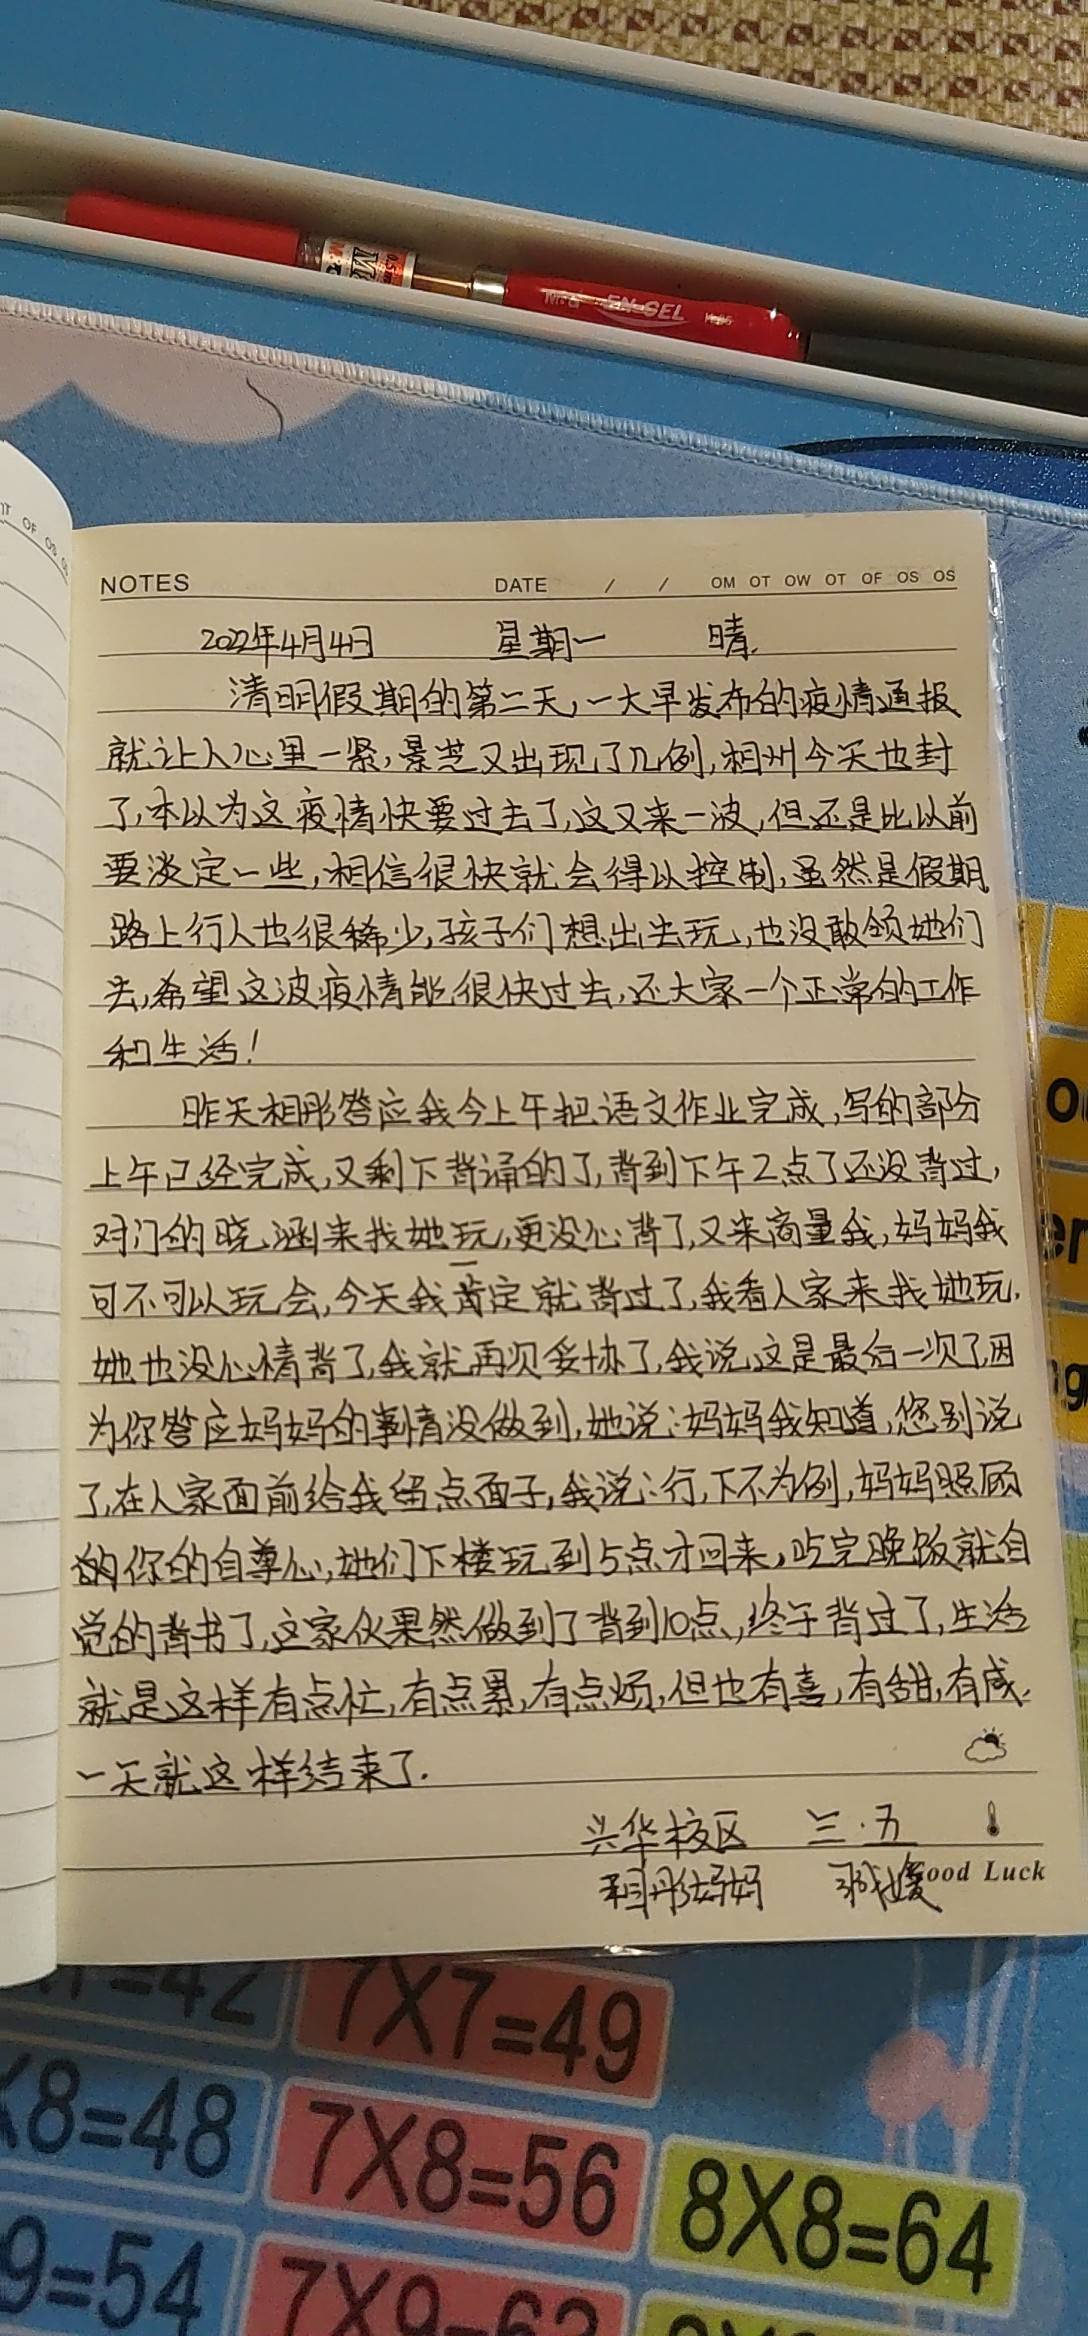 0.5mm
M&G EN-GEL K35
NOTES DATE / / OM OT OW OT OF OS OS
2022年4月4日 星期一 晴.
清明假期的第二天,一大早发布的疫情通报
就让人心里一紧,景芝又出现了几例,相州今天也封
了,本以为这疫情快要过去了,这又来一波,但还是比以前
要淡定一些,相信很快就会得以控制,虽然是假期,
路上行人也很稀少,孩子们想出去玩,也没敢领她们
去,希望这波疫情能很快过去,还大家一个正常的工作
和生活!
昨天相彤答应我今上午把语文作业完成,写的部分
上午已经完成,又剩下背诵的了,背到下午2点了还没背过,
对门的晓涵来找她玩,更没心背了,又来商量我,妈妈我
可不可以玩会,今天我肯定就背过了,我看人家来找她玩,
她也没心情背了,我就再次妥协了,我说,这是最后一次了,因
为你答应妈妈的事情没做到,她说:妈妈我知道,您别说
了,在人家面前给我留点面子,我说:行,下不为例,妈妈照顾
的你的自尊心,她们下楼玩到5点才回来,吃完晚饭就自
觉的背书了,这家伙果然做到了背到10点,终于背过了,生活
就是这样有点忙,有点累,有点烦,但也有喜,有甜,有咸.
一天就这样结束了.
兴华校区 三·五
相彤妈妈
Good Luck
=42
7X7=49
X8=48
7X8=56
8X8=64
9=54
7X9=63